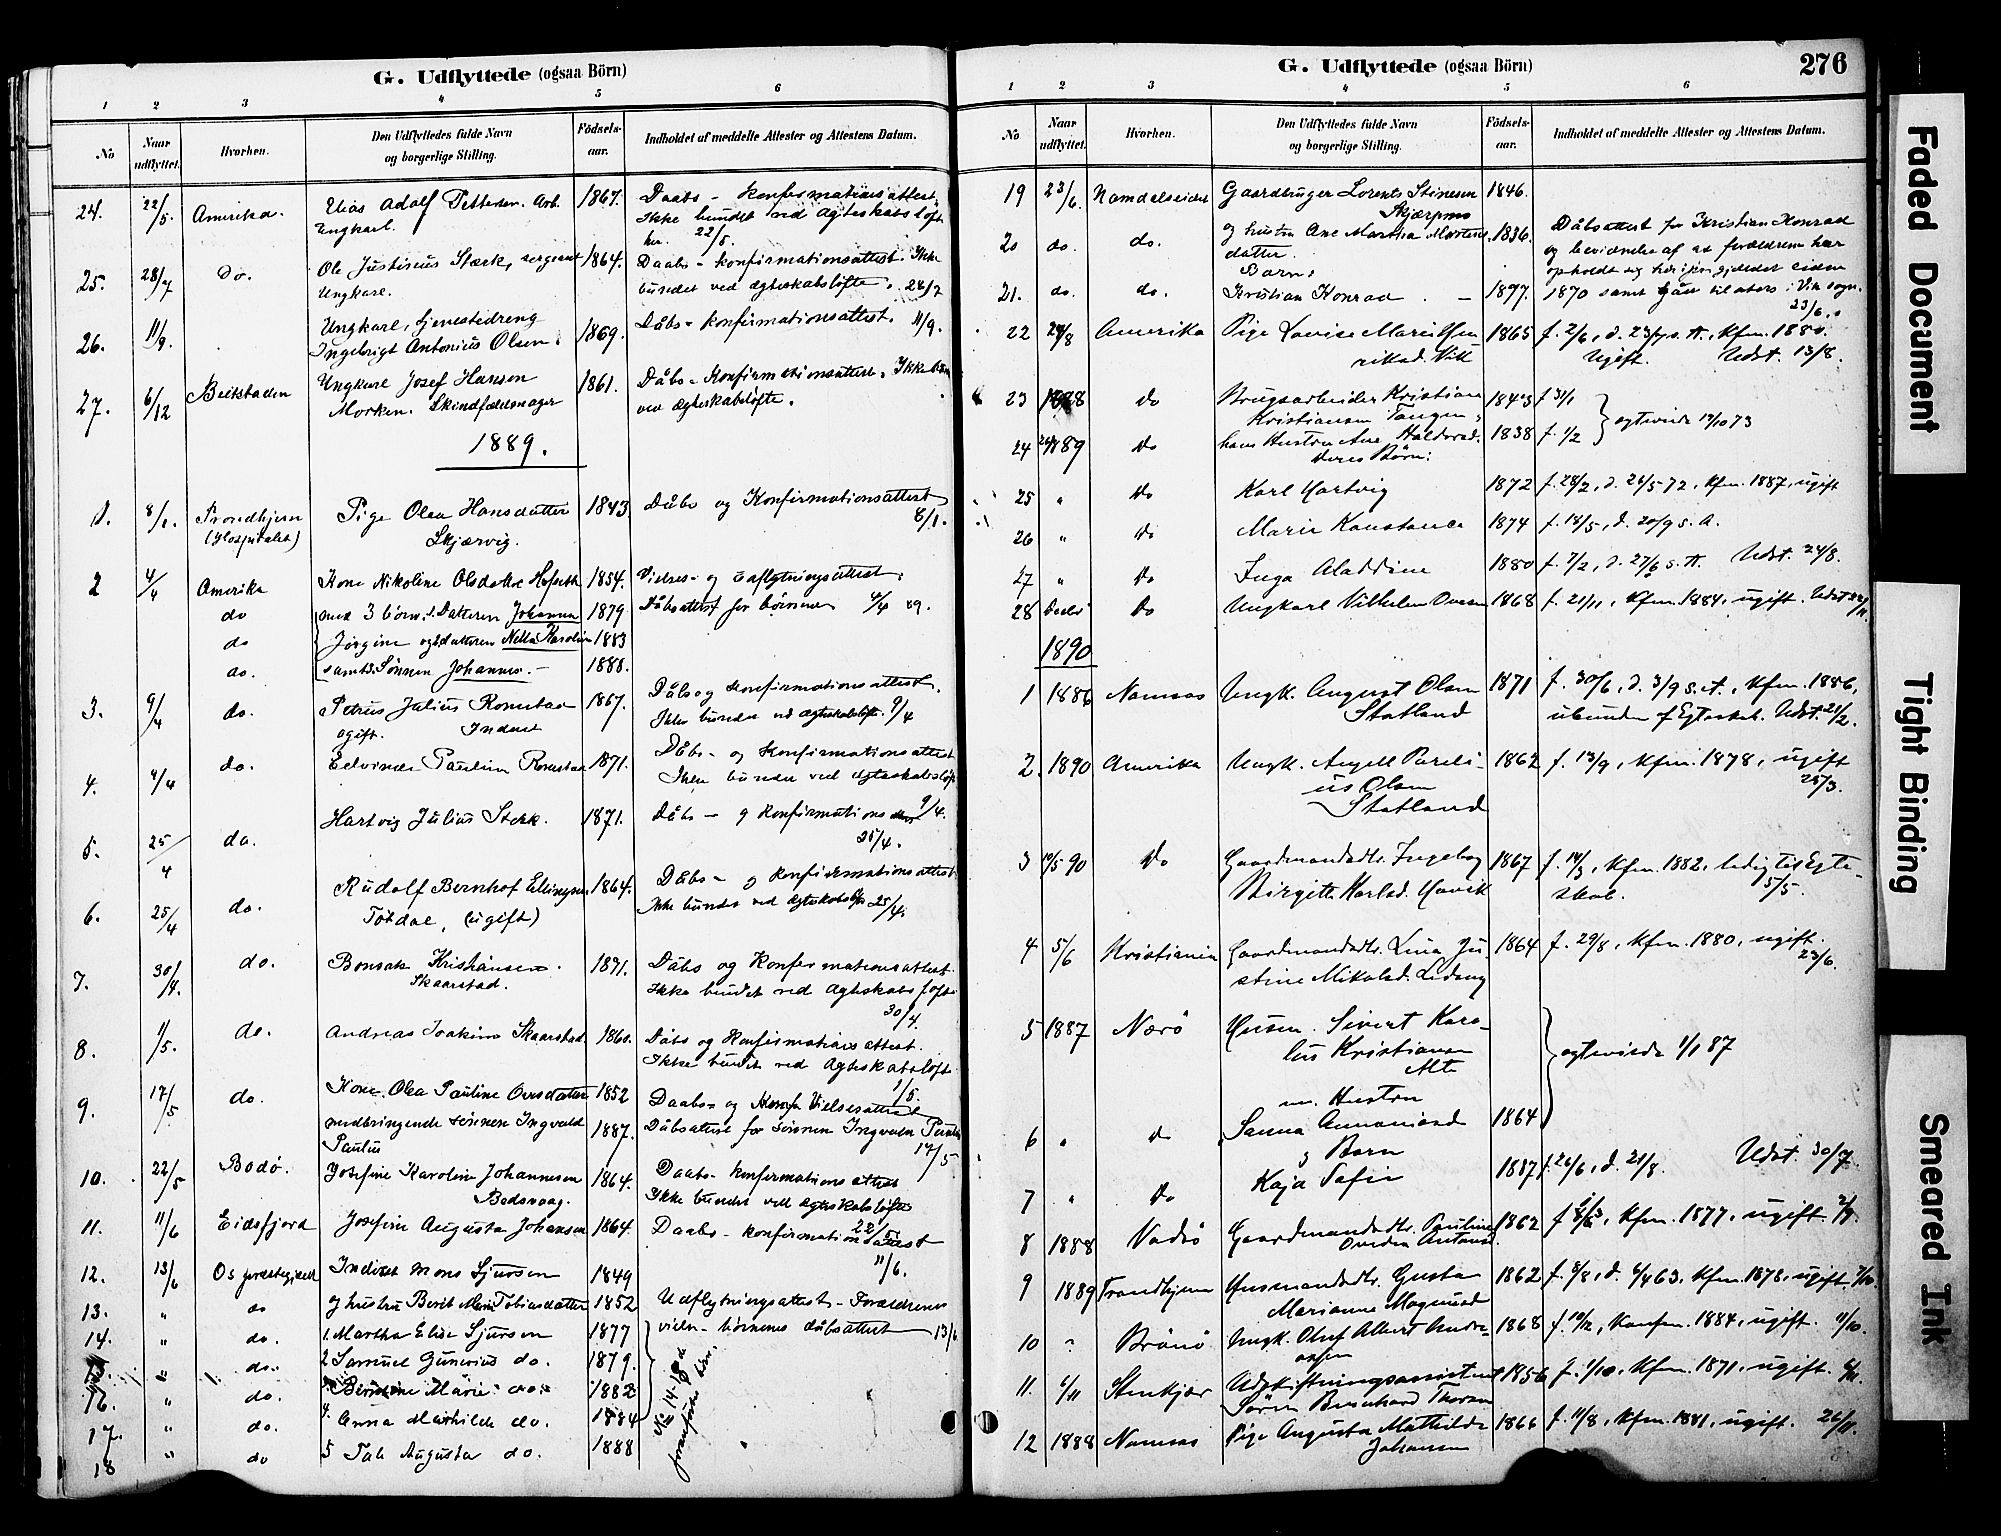 G. Udflyttede (ogsaa Börn)
1 2 3 4 5 6
No Naar udflyttet. Hvorhen. Den Udflyttedes fulde Navn og borgerlige Stilling. Födsels-aar. Indholdet af meddelte Attester og Attestens Datum.
24. 22/5 Amerika. Adolf Pettersen. Arb. 1867. Daabs - konfirmationsattest.
Ungkarl. Ikke bundet ved Ægteskabsløfte
her. 22/5.
25. 28/7 Do. Ole Justinus Stærk, sergeant 1864. Daabs - konfirmationsattest. Ikke
Ungkarl. bundet ved ægteskabsløfte. 28/7
26. 11/9 Ungkarl, tjenestedreng
Ingebrigt Antonius Olsen. 1869. Dåbs - konfirmationsattest. 11/9.
27. 6/12 Beitstaden Ungkarl Josef Hansen 1861. Dåbs - Konfirmationsattest. Ikke
Morken. Skindfældmager ved ægteskabsløfte.
1889.
1. 8/1. Trondhjem Pige Olea Hansdatter 1843 Dåbs og Konfirmationsattest
(Hospitalet) Skjærvig. 8/1.
2 4/4 Amerika Kone Nikoline Olsdatter 1854. Vielses- og udflytningsattest.
do med 3 børn: 1. Datteren Johanna 1879 Dåbsattest for børnene 4/4 89.
do Jørgine og 2 datteren Nella Karoline 1883
do. samt 3. Sønnen Johannes. - 1888.
3. 9/4 do. Petrus Julius Romstad 1867. Dåbs og Konfirmationsattest.
ugift. Inderst Ikke bunden ved ægteskabsløfte. 9/4
4. 9/4 do. Edvinda Paulina Romstad 1871. Dåbs - og Konfirmationsattest
Ikke bunden ved ægteskabsløfte
9/4.
5. 25/4 do. Hartvig Julius Sterk. 1871. Dåbs - og konfirmations
25/4.
6. 25/4 do. Rudolf Bernhof Ellingsen 1864. Dåbs - og konfirmationsattest.
Totdal, (ugift) Ikke bunden ved ægteskabsløfte 25/4.
7. 30/4. do. Bonsak Kristiansen. 1871. Dåbs og Konfirmationsattest.
Skaarstad. Ikke bundet ved Ægteskabsløfte
30/4.
8. 1/5. do. Andreas Joakim Skaarstad 1860. Dåbs og Konfirmationsattest.
Ikke bundet ved Ægteskabsløfte
1/5.
9. 17/5 do. Kone. Olea Pauline Ovesdatter 1852 Daabs- og Vielsesattest
medbringende sønnen Ingvald 1887. Dåbsattest for sønnen Ingvald
Paulus 17/5
10. 22/5 Bodø. Josefine Karoline Johannesen 1864. Daabs - konfirmationsattest
Bodsvaag. Ikke bundet ved ægteskabsløfte
22/5.
11. 11/6 Eidsfjord Josefine Augusta Johansen 1864. Daabs - konfirmationsattest
11/6.
12. 13/6 Os præstegjeld Inderst Mons Sjursen 1849
13. " do og hustru Berit Marie Tobiasdatter 1852 Udflytningsattest - Forældrenes
14. " do. 1. Martha Elise Sjursen 1877 vielse- børnenes dåbsattest 13/6
15. " do. 2 Samuel Gunerius do. 1879.
16. " do. Marie do. 1882
17. " do. 4. Anna Mathilde do. 1884
18 " do 5 Augusta do. 1888
No 14-18
G. Udflyttede (ogsaa Börn)
276
1 2 3 4 5 6
No Naar udflyttet. Hvorhen. Den Udflyttedes fulde Navn og borgerlige Stilling. Födsels-aar. Indholdet af meddelte Attester og Attestens Datum.
19 23/6. Namdalseidet Gaardbruger Lorents Stinesen 1846.
20 do. do. og hustru Ane Martha Mortens 1836. Dåbsattest for Kristian Konrad
datter. og bevidnelse af at forældrene har
Barn: opholdt sig her i præstegjeldet siden
21. do. do. Kristian Konrad - 1877. 1870 samt gået til alters i Vik sogn.
23/6.
22 24/8 Amerika Pige Lovise Marie Hen 1865 f. 2/6, d. 23/7 s. A., kfm. 1880.
rikad. Vik ugift. Udst. 13/8.
23 1888 do Brugsarbeider Kristian 1843 f. 31/1
Kristiansen Tangen, ægteviede 12/10 73
24 89 do hans Hustru Ane Haldorsd. 1838 f. 1/2
deres Børn:
25 " do Karl Hartvig 1872 f. 28/2, d. 26/5 72, kfm. 1887, ugift
26 " do Marie Konstance 1874 f. 18/5, d. 20/9 s. A.
27 " do Inga Aladdine 1880 f. 7/2, d. 27/6 s. A. Udst. 24/8.
28 do Ungkarl Vilhelm Ovesen 1868 f. 21/11, kfm. 1884, ugift. Udst
1890
1 1886 Namsos Ungk. August Olsen 1871 f. 30/6, d. 3/9 s. A., kfm. 1886,
Statland ubunden af Egteskab. Udst. 21/2.
2. 1890 Amerika Ungk. Angell Pareli- 1862 f. 13/9, kfm. 1878, ugift
us Olsen 25/3.
Statland
3 10/5 90 do Gaardmandsdtr. Ingeborg 1867 f. 14/3, kfm. 1882, ledig til Egte-
Birgitte Karlsd. Havik skab. 5/5.
4 5/6 Kristiania Gaardmandsdtr. Lina Ju- 1864 f. 29/8, kfm. 1880, ugift.
stine Mikalsd. 23/6.
5 1887 Nærö Husm. Sivert Karo-
lus Kristiansen ægteviede 1/1 87
m. Hustru
6 " do Sanna 1864
og Barn
7 " do Kaja Sofie 1887 f. 26/6, d. 21/8. Udst. 30/7.
8 1888 Vadsö Gaardmandsdtr. Pauline 1862 kfm. 1877, ugift
Ovedia Antonsd.
9 1889 Trondhjem Husmandsdtr. Gusta 1862 f. 8/8, d. 6/4 63, kfm. 1878, ugift.
Marianne Magnusd
10 " Brönö Ungk. Oluf Albert Andre- 1868 f. 10/2, konfm. 1884, ugift. 11/10.
asen
11. 6/11 Stenkjær Udskiftningsassistent 1856 f. 1/10, kfm. 1871, ugift. 6/11.
Sören Bernhard
12 1888 Namsos Pige Augusta Mathilde 1866 f. 11/8, kfm. 1881, ugift. 26/11.
Johansen
Faded Document
Tight Binding
Smeared Ink